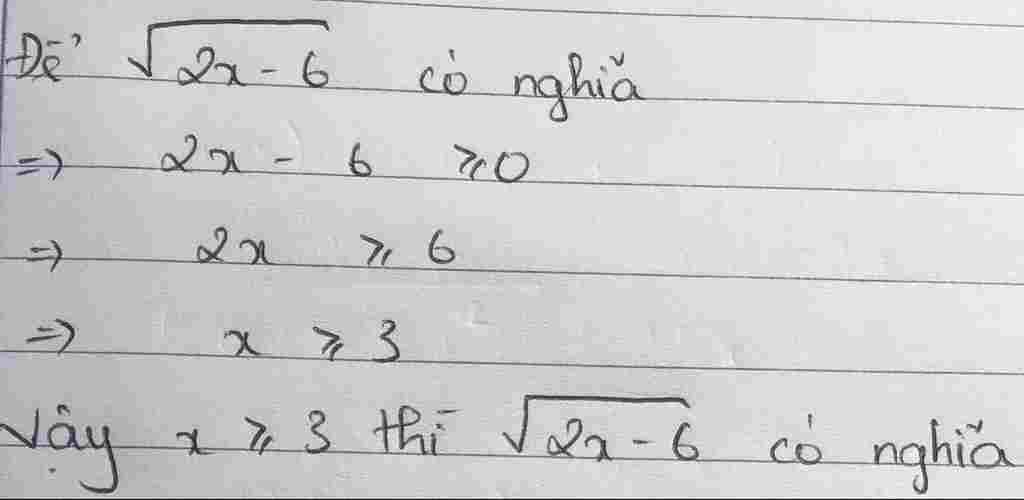 Để √(2x - 6) có nghĩa
=> 2x - 6 ⩾ 0
=> 2x ⩾ 6
=> x ⩾ 3
Vậy x ⩾ 3 thì √(2x - 6) có nghĩa